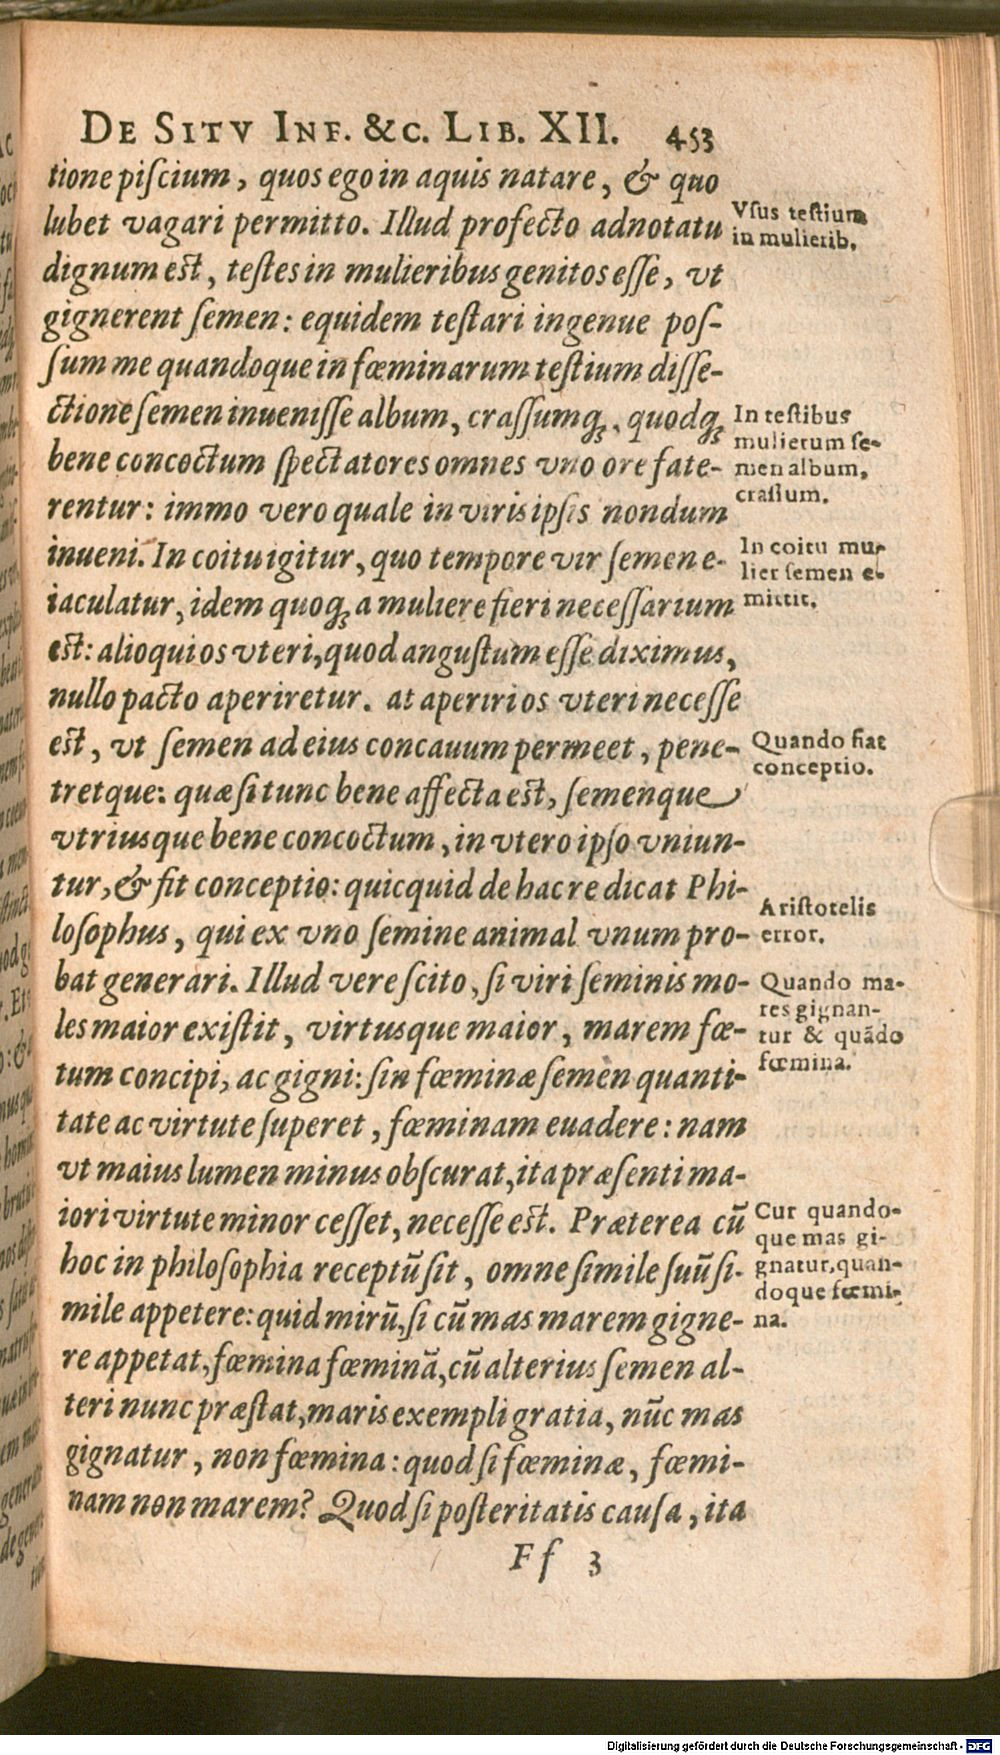 DE SITV INF. &C. LIB. XII. 453
tione piſcium, quos ego in aquis natare, & quo
lubet vagari permitto. Illud profecto adnotatu
dignum eſt, teſtes in mulieribus genitos eſſe, vt
gignerent ſemen: equidem teſtari ingenue poſ-
ſum me quandoque in fœminarum teſtium diſſe-
ctione ſemen inueniſſe album, craſſumq́;, quodq́;
bene concoctum ſpectatores omnes vno ore fate-
rentur: immo vero quale in viris ipſis nondum
inueni. In coitu igitur, quo tempore vir ſemen e-
iaculatur, idem quoq́; a muliere fieri neceſſarium
eſt: alioqui os vteri, quod anguſtum eſſe diximus,
nullo pacto aperiretur. at aperiri os vteri neceſſe
eſt, vt ſemen ad eius concauum permeet, pene-
tretque: quæ ſi tunc bene affecta eſt, ſemenque
vtriusque bene concoctum, in vtero ipſo vniun-
tur, & fit conceptio: quicquid de hac re dicat Phi-
loſophus, qui ex vno ſemine animal vnum pro-
bat generari. Illud vere ſcito, ſi viri ſeminis mo-
les maior exiſtit, virtusque maior, marem fœ-
tum concipi, ac gigni: ſin fœminæ ſemen quanti-
tate ac virtute ſuperet, fœminam euadere: nam
vt maius lumen minus obſcurat, ita præſenti ma-
iori virtute minor ceſſet, neceſſe eſt. Præterea cū
hoc in philoſophia receptū ſit, omne ſimile ſuū ſi-
mile appetere: quid mirū, ſi cū mas marem gigne-
re appetat, fœmina fœminā, cū alterius ſemen al-
teri nunc præſtat, maris exempli gratia, nūc mas
gignatur, non fœmina: quod ſi fœminæ, fœmi-
nam non marem? Quod ſi poſteritatis cauſa, ita
Ff 3
Vſus teſtium
in mulierib.
In teſtibus
mulierum ſe-
men album,
craſſum.
In coitu mu-
lier ſemen e-
mittit.
Quando fiat
conceptio.
Ariſtotelis
error.
Quando ma-
res gignan-
tur & quādo
fœmina.
Cur quando-
que mas gi-
gnatur, quan-
doque fœmi-
na.
Digitalisierung gefördert durch die Deutsche Forschungsgemeinschaft - DFG